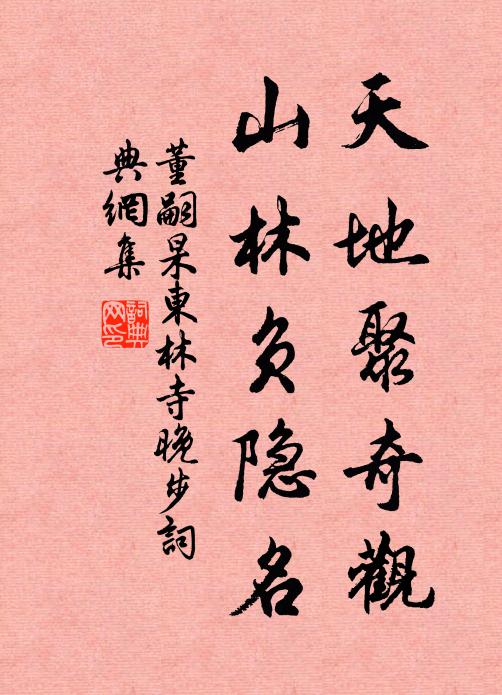 天地聚奇觀
山林負隐名
董嗣杲東林寺晚步詞
典網集
詞典
网印